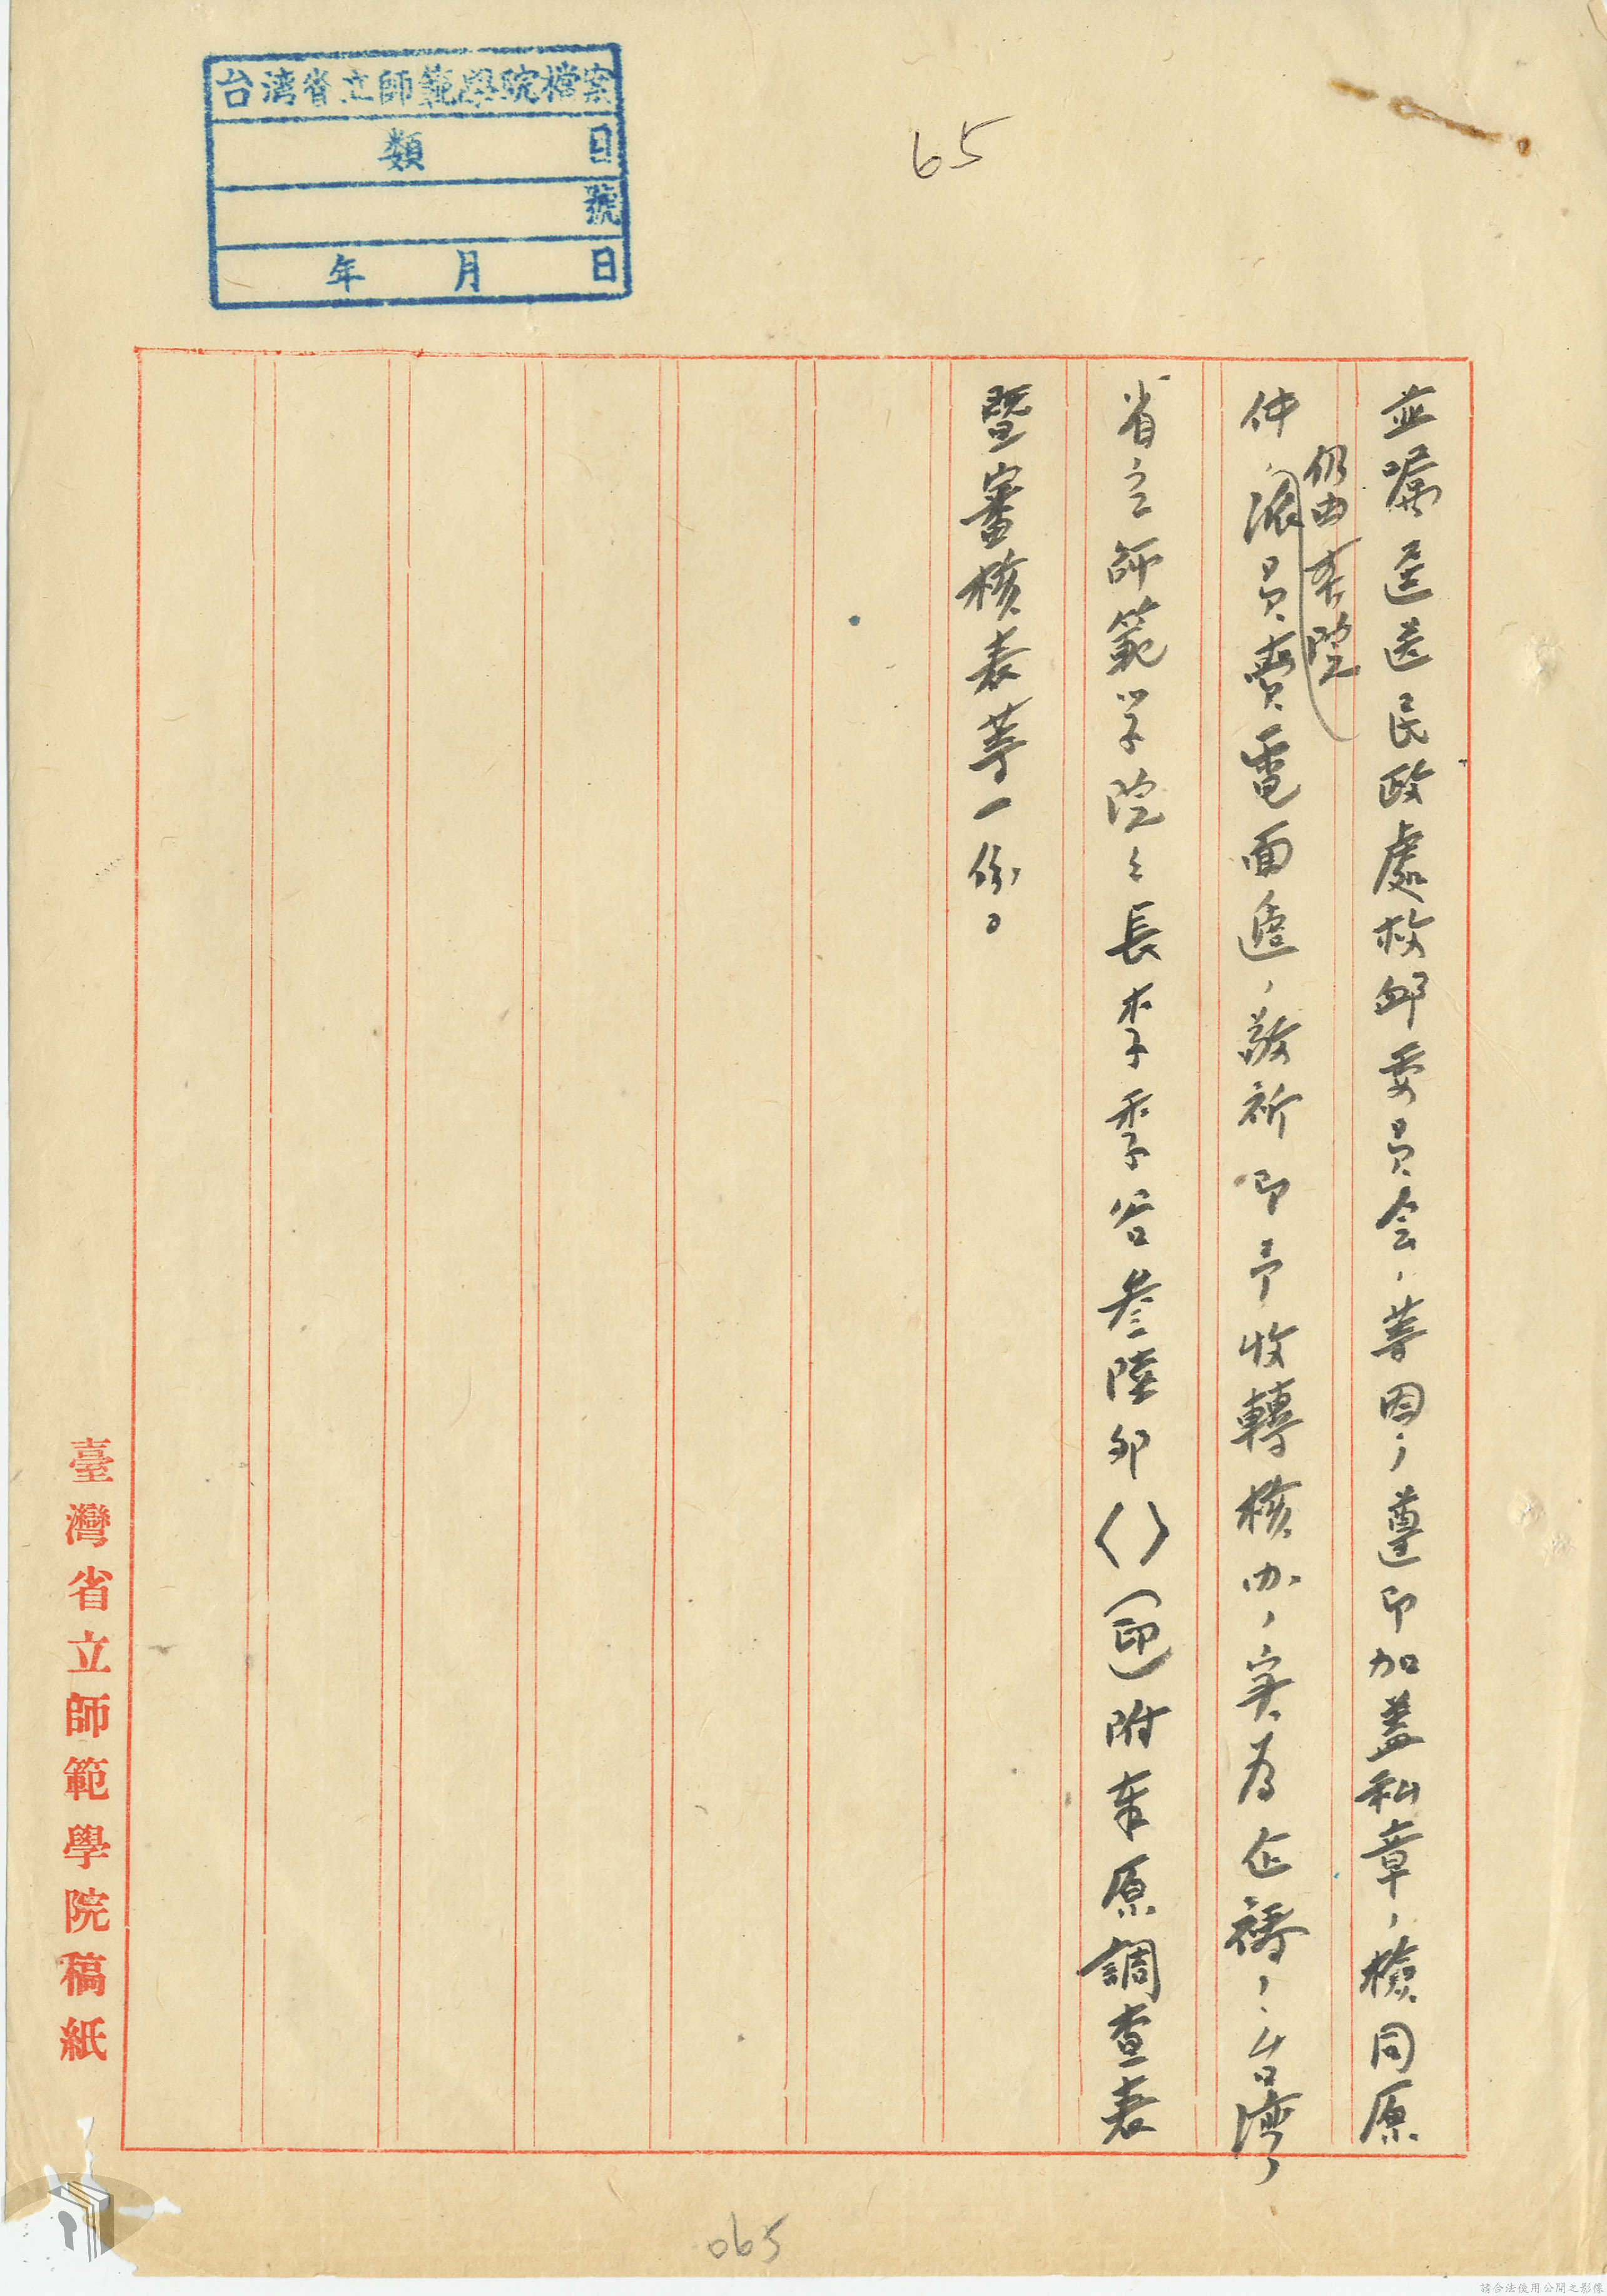 台湾省立師範學院檔案
類 目
號
年 月 日
65
並囑逕送民政處撫卹委員会,等因,遵即加蓋私章,檢同原
仍由本院
件,派員賫電面遞,敬祈即予收轉核办,实为企禱,台湾
省立師範学院々長李季谷叁陸卯〈〉(印)附奉原調查表
暨審核表等一份。
臺灣省立師範學院稿紙
065
請合法使用公開之影像